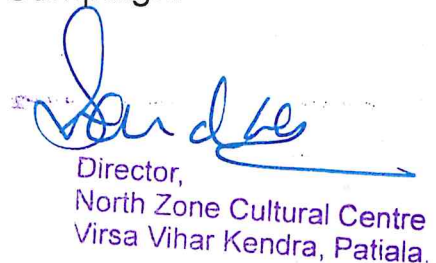 Director,
North Zone Cultural Centre
Virsa Vihar Kendra, Patiala.